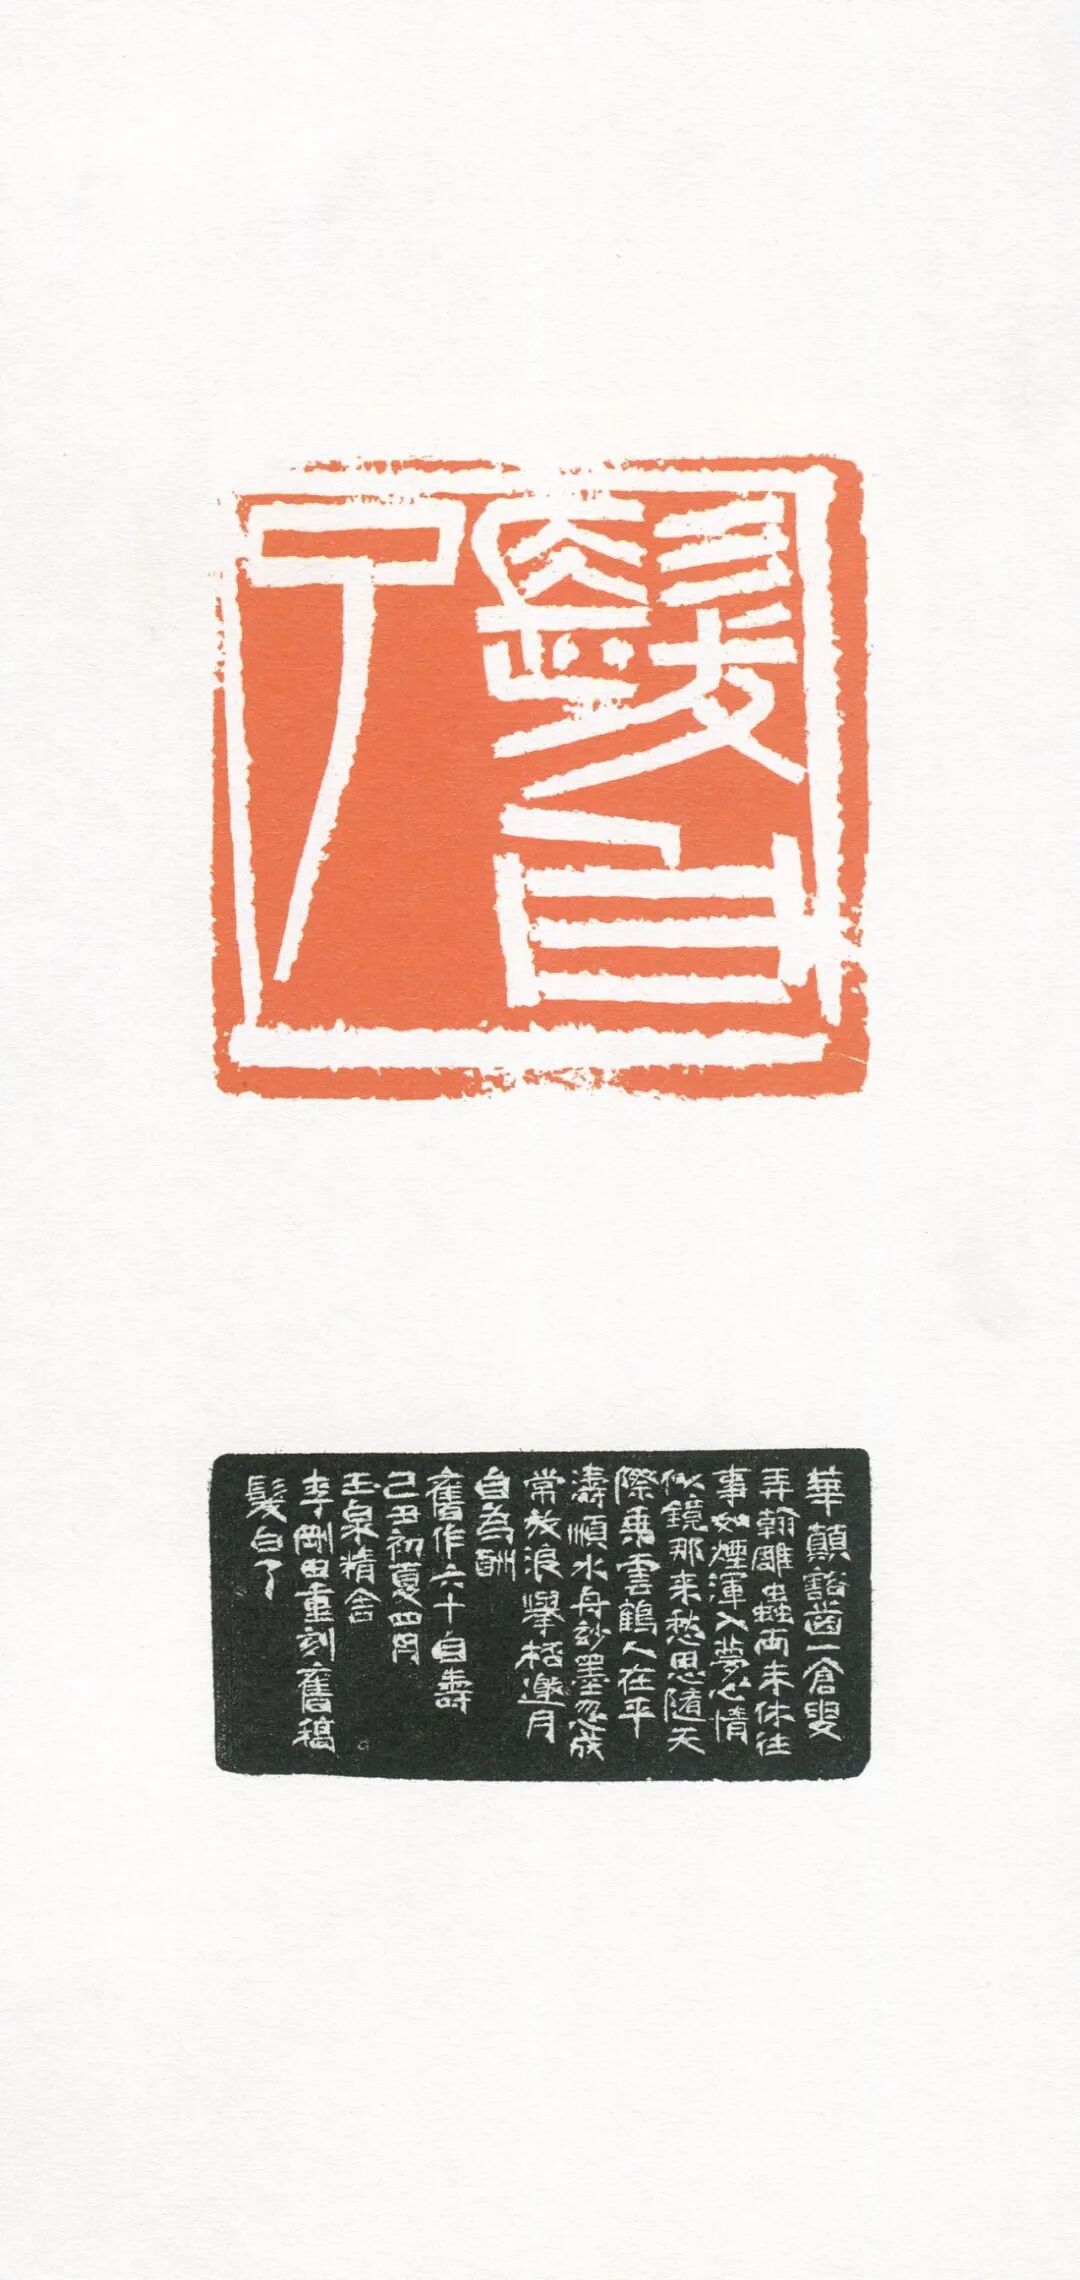 髮白
了
華顛豁齒一倉叟
弄翰雕蟲兩未休往
事如煙渾入夢心情
似鏡那来愁思隨天
際乘雲鶴人在平
濤順水舟玅墨忽成
常放浪舉桮邀月
自為酬
舊作六十自壽
己丑初夏四月
玉泉精舍
李剛田重刻舊稿
髮白了